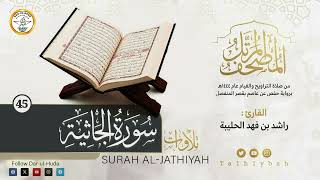 المصحف المرتل
من صلاة التراويح والقيام عام ١٤٤٤هـ
برواية حفص عن عاصم بقصر المنفصل
القارئ :
راشد بن فهد الحليبة
45
تلاوات
سورة الجاثية
SURAH AL-JATHIYAH
Follow Dar-ul-Huda
Talhiybah